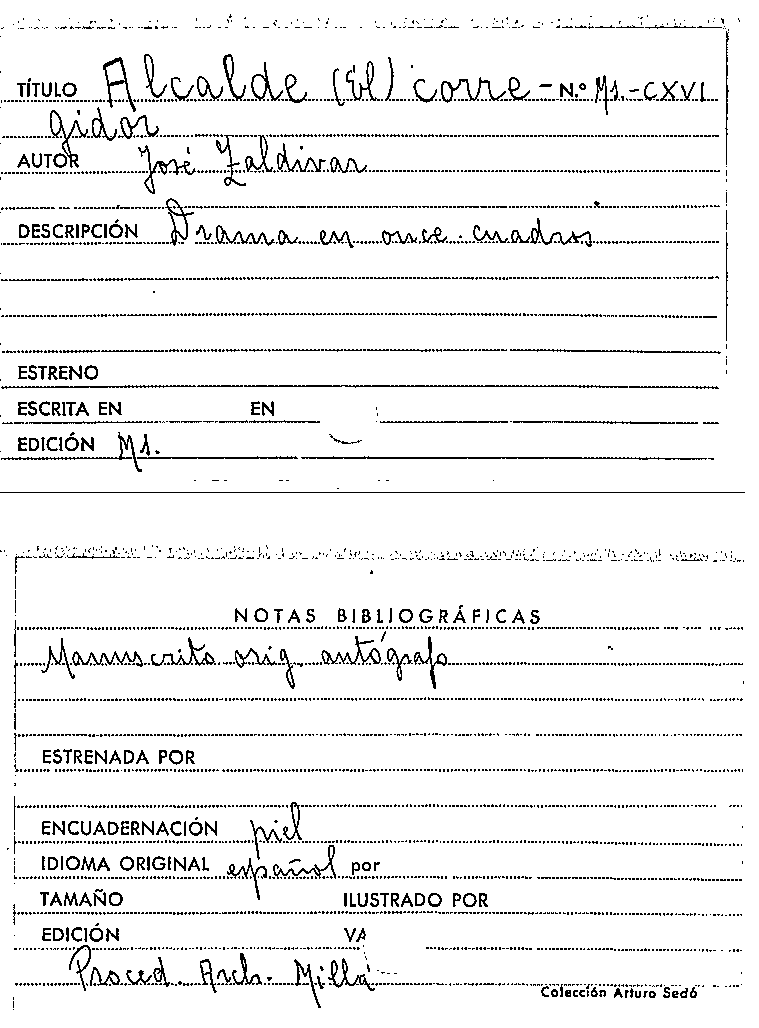 TÍTULO Alcalde (El) corre- N.º Ms.-CXVI
gidor
AUTOR José Zaldivar
DESCRIPCIÓN Drama en once cuadros
ESTRENO
ESCRITA EN EN
EDICIÓN Ms.
NOTAS BIBLIOGRÁFICAS
Manuscrito orig. autógrafo
ESTRENADA POR
ENCUADERNACIÓN piel
IDIOMA ORIGINAL español por
TAMAÑO ILUSTRADO POR
EDICIÓN VA
Proced. Arch. Millá
Colección Arturo Sedó